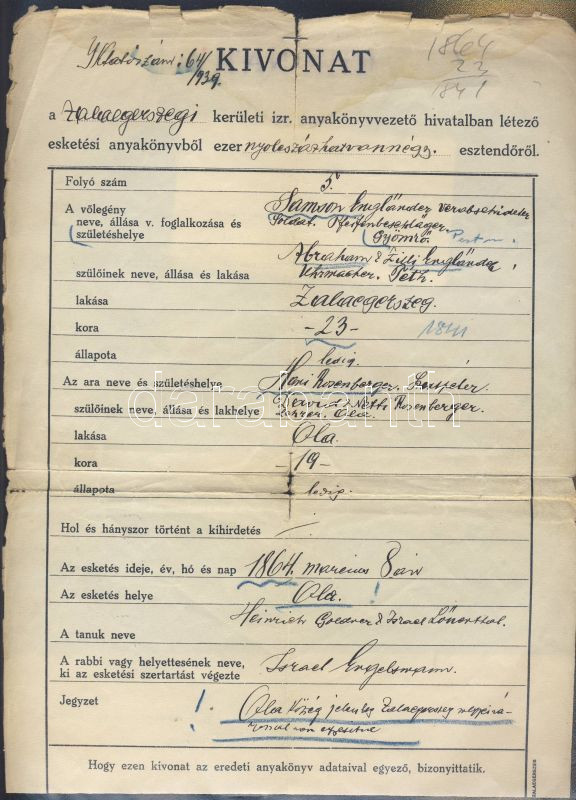 Iktatószám: 64/1939.
KIVONAT
1864
23
1841
a Zalaegerszegi kerületi izr. anyakönyvvezető hivatalban létező
esketési anyakönyvből ezer nyolcszázhatvannégy. esztendőről.
Folyó szám 5.
A vőlegény Samson Engländer verabschiedeter
neve, állása v. foglalkozása és Soldat. Pfeifenbeschläger.
születéshelye Gyömrő. Pest m.
Abraham & Zilli Engländer
szülőinek neve, állása és lakása Uhrmacher. Péth.
lakása Zalaegerszeg.
kora -23- 1841
állapota ledig.
Az ara neve és születéshelye Hani Rosenberger.
szülőinek neve, állása és lakhelye & Netti Rosenberger.
Ola.
lakása Ola.
kora -19-
állapota ledig.
Hol és hányszor történt a kihirdetés
Az esketés ideje, év, hó és nap 1864. március 8án
Az esketés helye Ola. !
Heinrich & Israel Löwenthal.
A tanuk neve
A rabbi vagy helyettesének neve, Israel Engelsmann.
ki az esketési szertartást végezte
Jegyzet ! Ola község jelenleg Zalaegerszeg megyei vá-
rossal van egyesítve
Hogy ezen kivonat az eredeti anyakönyv adataival egyező, bizonyittatik.
darabanth